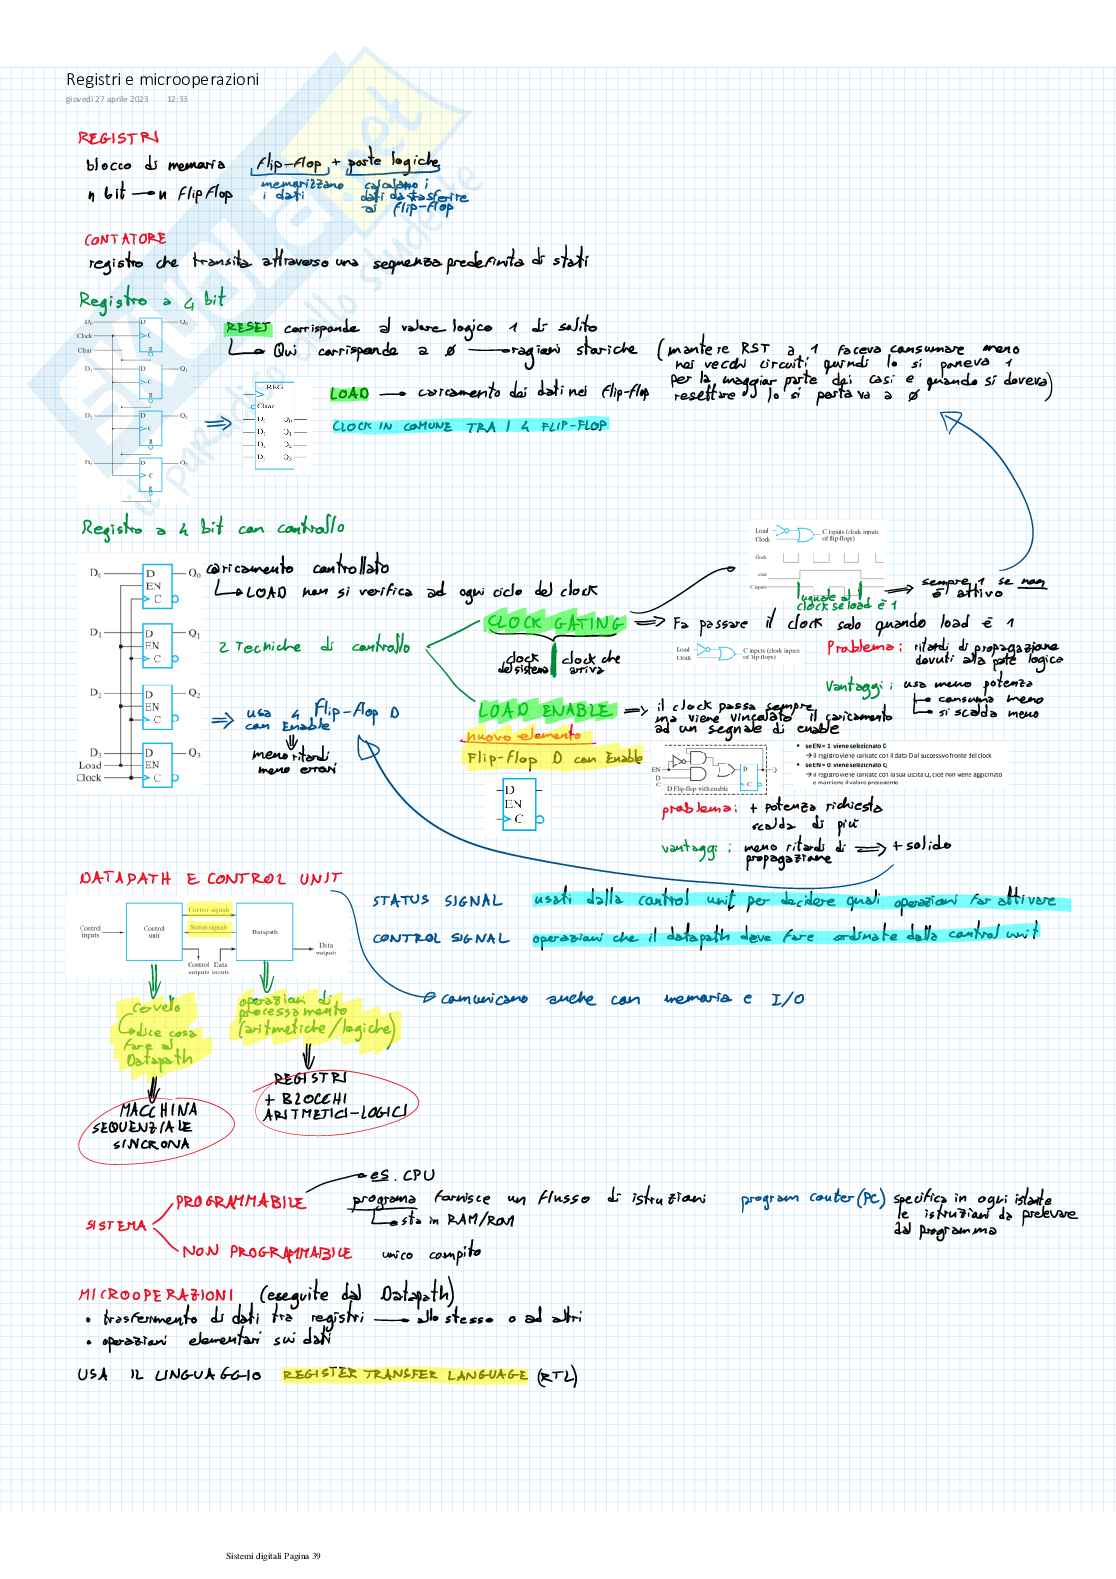 Registri e microoperazioni
giovedì 27 aprile 2023 12:33
REGISTRI
blocco di memoria Flip-Flop + porte logiche
n bit → n Flip Flop
memorizzano i dati
calcolano i dati da trasferire ai flip-flop
CONTATORE
registro che transita attraverso una sequenza predefinita di stati
Registro a 4 bit
RESET corrisponde al valore logico 1 di solito
Qui corrisponde a 0 → ragioni storiche (mantere RST a 1 faceva consumare meno
nei vecchi circuiti quindi lo si poneva 1
per la maggior parte dei casi e quando si doveva)
resettare lo si portava a 0
LOAD → caricamento dei dati nei flip-flop
CLOCK IN COMUNE TRA I 4 FLIP-FLOP
D₀ Q₀
Clock
Clear
D C R
REG
Clear
D₀ Q₀
D₁ Q₁
D₂ Q₂
D₃ Q₃
Registro a 4 bit con controllo
D₀ D EN C Q₀
D₁ D EN C Q₁
D₂ D EN C Q₂
D₃ D EN C Q₃
Load
Clock
caricamento controllato
LOAD non si verifica ad ogni ciclo del clock
2 Tecniche di controllo
CLOCK GATING ⇒ Fa passare il clock solo quando load è 1
clock del sistema
clock che arriva
Load
Clock
C inputs (clock inputs of flip-flops)
Clock
Load
C inputs
uguale al clock se load è 1
sempre 1 se non è attivo
Load
Clock
C inputs (clock inputs of flip-flops)
Problema: ritardi di propagazione
dovuti alla porte logica
Vantaggi: usa meno potenza
consuma meno
si scalda meno
LOAD ENABLE ⇒ il clock passa sempre
ma viene vincolato il caricamento
ad un segnale di enable
nuovo elemento
Flip-Flop D con Enable
D
EN
C
EN
D
C
D Flip-flop with enable
• se EN = 1 viene selezionato D
→ il registro viene caricato con il dato D al successivo fronte del clock
• se EN = 0 viene selezionato Q
→ il registro viene caricato con la sua uscita Q, cioè non viene aggiornato
e mantiene il valore precedente
problema: + potenza richiesta
scalda di più
vantaggi: meno ritardi di propagazione ⇒ + solido
usa 4 Flip-Flop D
con Enable
meno ritardi
meno errori
DATAPATH E CONTROL UNIT
Control inputs
Control unit
Control signals
Status signals
Datapath
Control outputs
Data inputs
Data outputs
STATUS SIGNAL usati dalla control unit per decidere quali operazioni far attivare
CONTROL SIGNAL operazioni che il datapath deve fare ordinate dalla control unit
comunicano anche con memoria e I/O
cervello
dice cosa
fare al
Datapath
operazioni di
processamento
(aritmetiche/logiche)
MACCHINA
SEQUENZIALE
SINCRONA
REGISTRI
+ BLOCCHI
ARITMETICI-LOGICI
SISTEMA
PROGRAMMABILE
es. CPU
programa fornisce un flusso di istruzioni
sta in RAM/ROM
program couter (PC) specifica in ogni istante
le istruzioni da prelevare
dal programma
NON PROGRAMMABILE unico compito
MICROOPERAZIONI (eseguite dal Datapath)
• trasferimento di dati tra registri → allo stesso o ad altri
• operazioni elementari sui dati
USA IL LINGUAGGIO REGISTER TRANSFER LANGUAGE (RTL)
Sistemi digitali Pagina 39